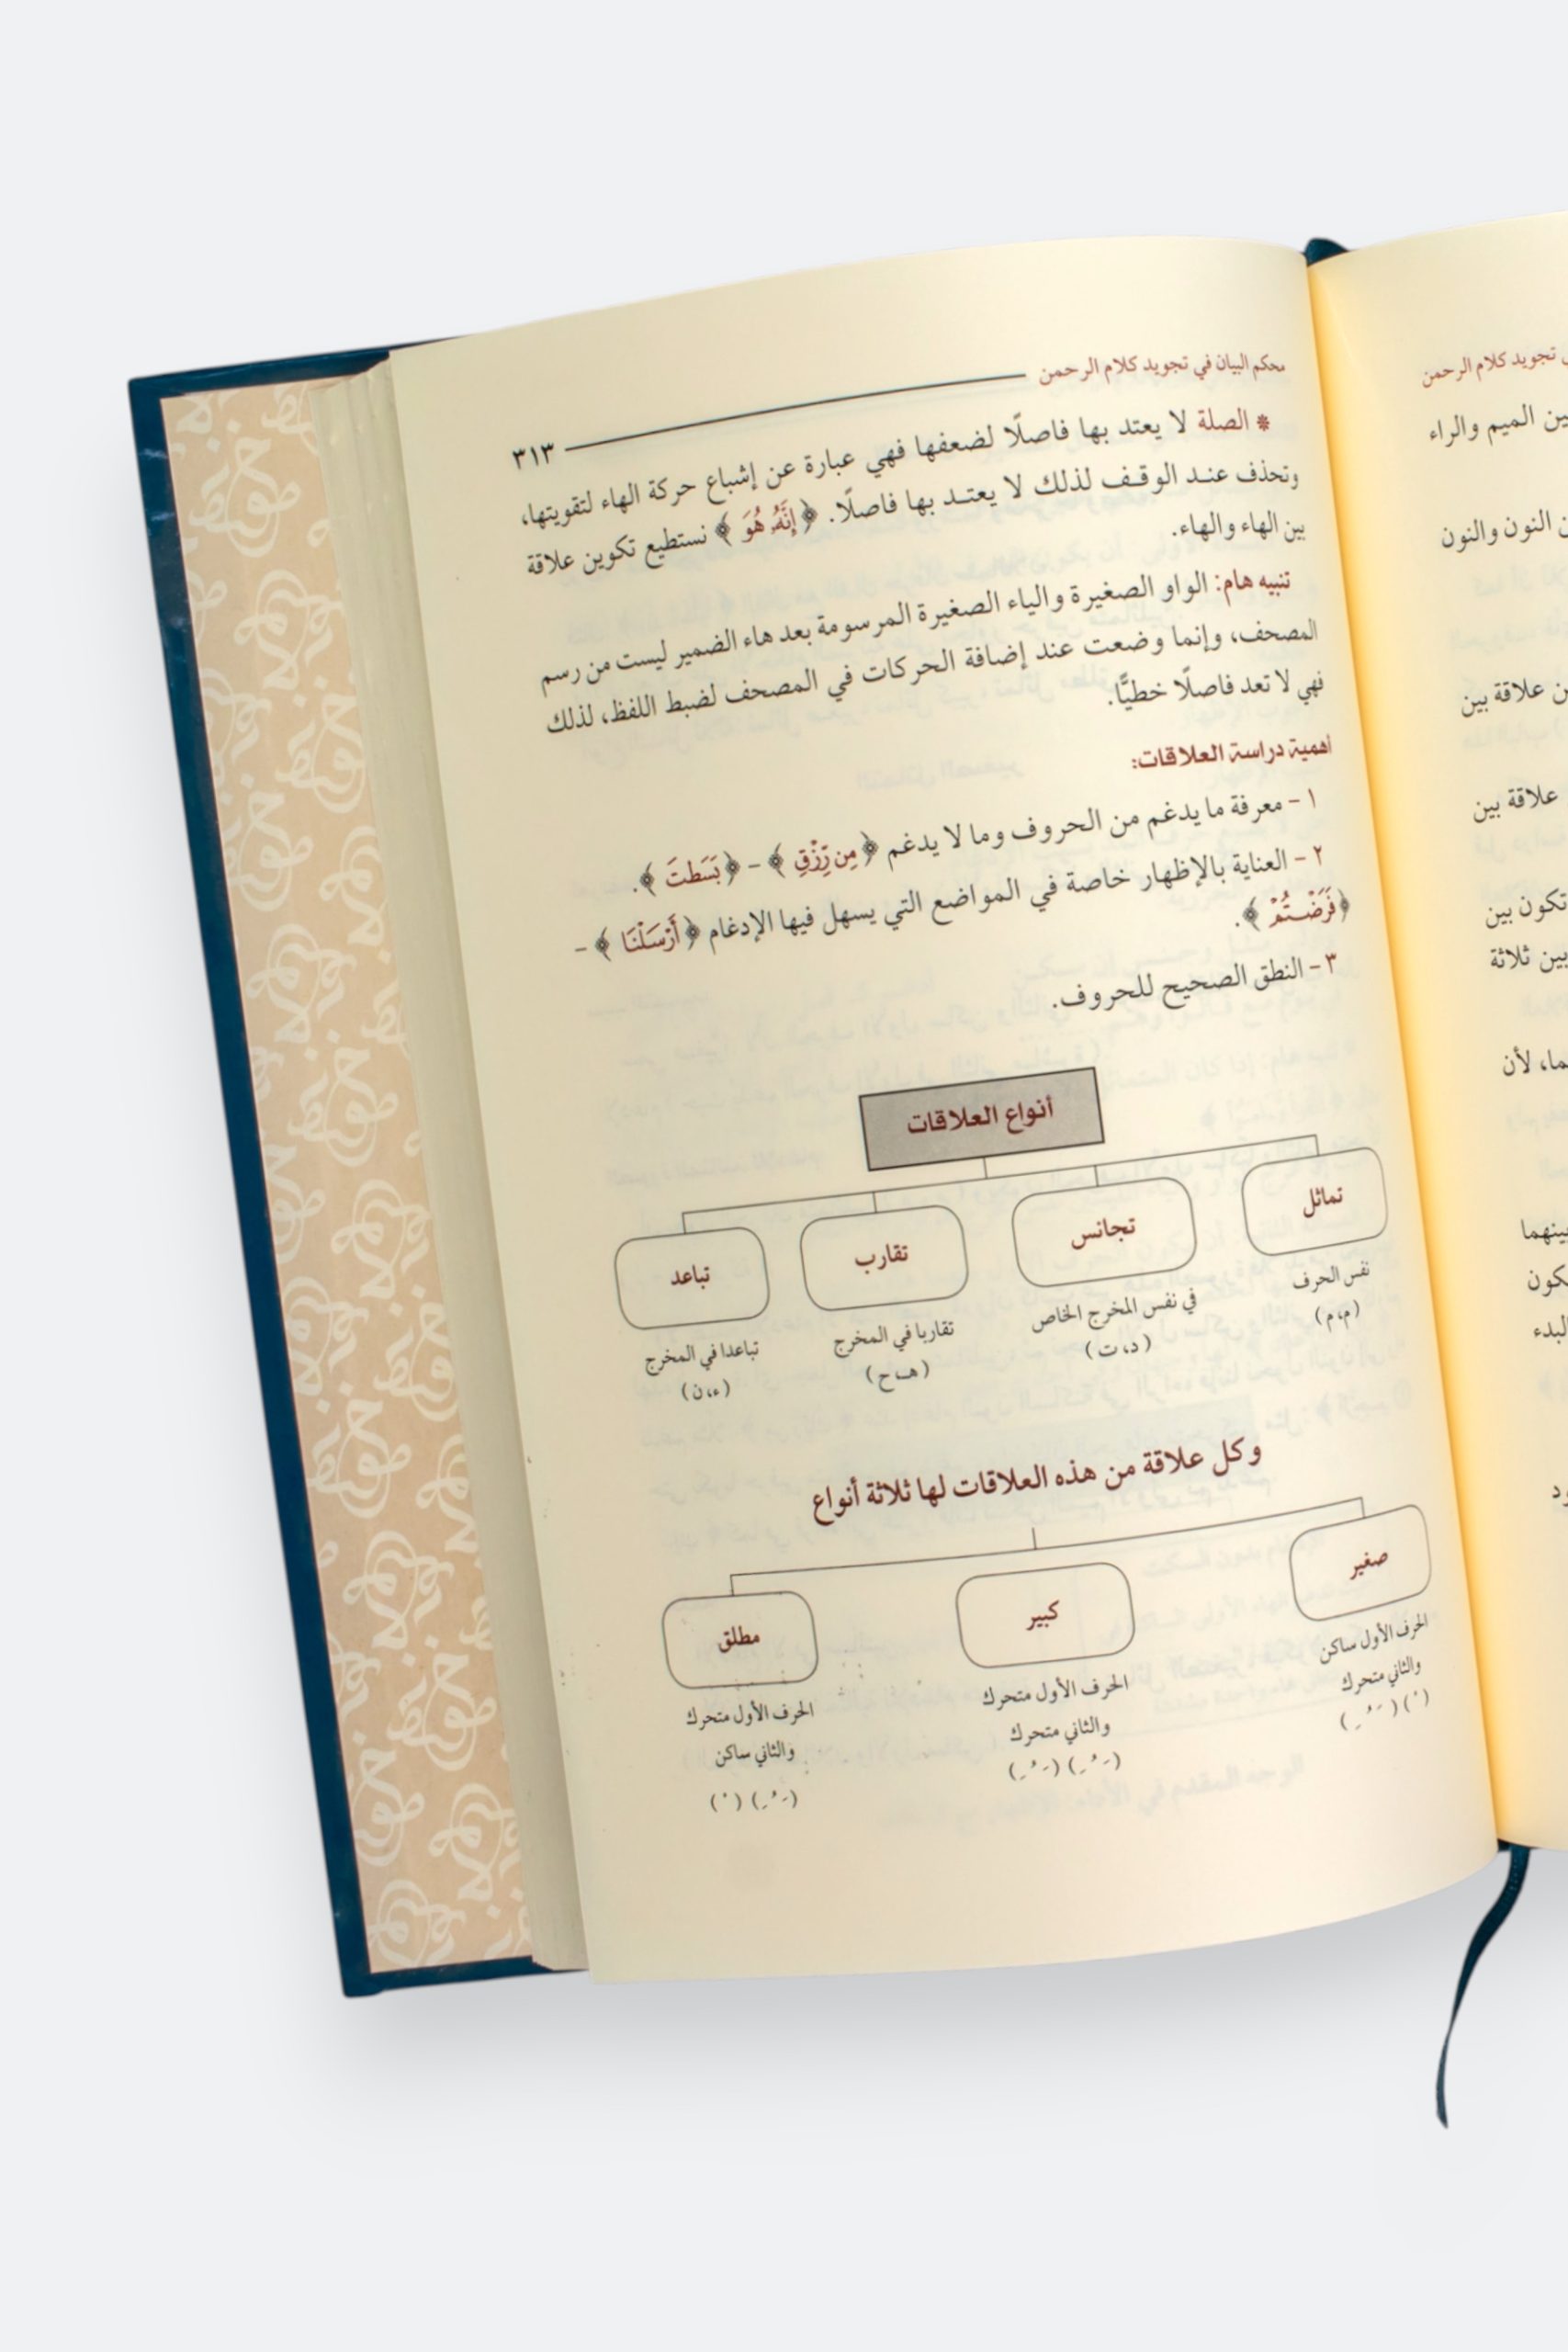 محكم البيان في تجويد كلام الرحمن ٣١٣
* الصلة لا يعتد بها فاصلًا لضعفها فهي عبارة عن إشباع حركة الهاء لتقويتها،
وتحذف عند الوقف لذلك لا يعتد بها فاصلًا. ﴿إِنَّهُۥ هُوَ﴾ نستطيع تكوين علاقة
بين الهاء والهاء.
تنبيه هام: الواو الصغيرة والياء الصغيرة المرسومة بعد هاء الضمير ليست من رسم
المصحف، وإنما وضعت عند إضافة الحركات في المصحف لضبط اللفظ، لذلك
فهي لا تعد فاصلًا خطيًّا.
أهمية دراسة العلاقات:
١ - معرفة ما يدغم من الحروف وما لا يدغم ﴿مِن رِّزْقٍ﴾ - ﴿بَسَطتَ﴾.
٢ - العناية بالإظهار خاصة في المواضع التي يسهل فيها الإدغام ﴿أَرْسَلْنَا﴾ -
﴿فَرَضْتُمْ﴾.
٣ - النطق الصحيح للحروف.
أنواع العلاقات
تماثل
نفس الحرف
(م، م)
تجانس
في نفس المخرج الخاص
(د، ت)
تقارب
تقاربا في المخرج
(هـ، ح)
تباعد
تباعدا في المخرج
(ء، ن)
وكل علاقة من هذه العلاقات لها ثلاثة أنواع
صغير
الحرف الأول ساكن
والثاني متحرك
(ْ) (َ ُ ِ)
كبير
الحرف الأول متحرك
والثاني متحرك
(َ ُ ِ) (َ ُ ِ)
مطلق
الحرف الأول متحرك
والثاني ساكن
(َ ُ ِ) (ْ)
تجويد كلام الرحمن
بين الميم والراء
النون والنون
علاقة بين
علاقة بين
تكون بين
بين ثلاثة
لأن